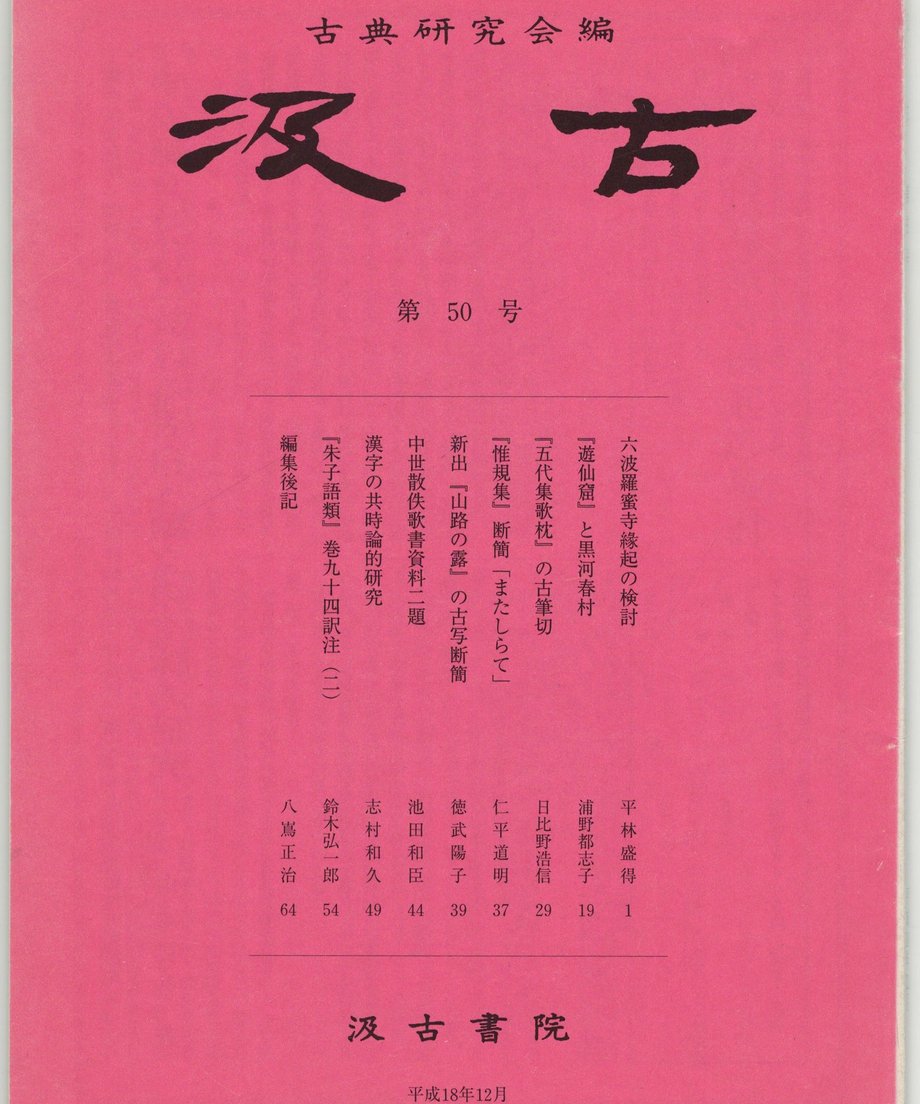 古典研究会編
汲古
第 50 号
六波羅蜜寺縁起の検討 平林盛得 1
『遊仙窟』と黒河春村 浦野都志子 19
『五代集歌枕』の古筆切 日比野浩信 29
『惟規集』断簡「またしらて」 仁平道明 37
新出『山路の露』の古写断簡 徳武陽子 39
中世散佚歌書資料二題 池田和臣 44
漢字の共時論的研究 志村和久 49
『朱子語類』巻九十四訳注（二） 鈴木弘一郎 54
編集後記 八嶌正治 64
汲古書院
平成18年12月